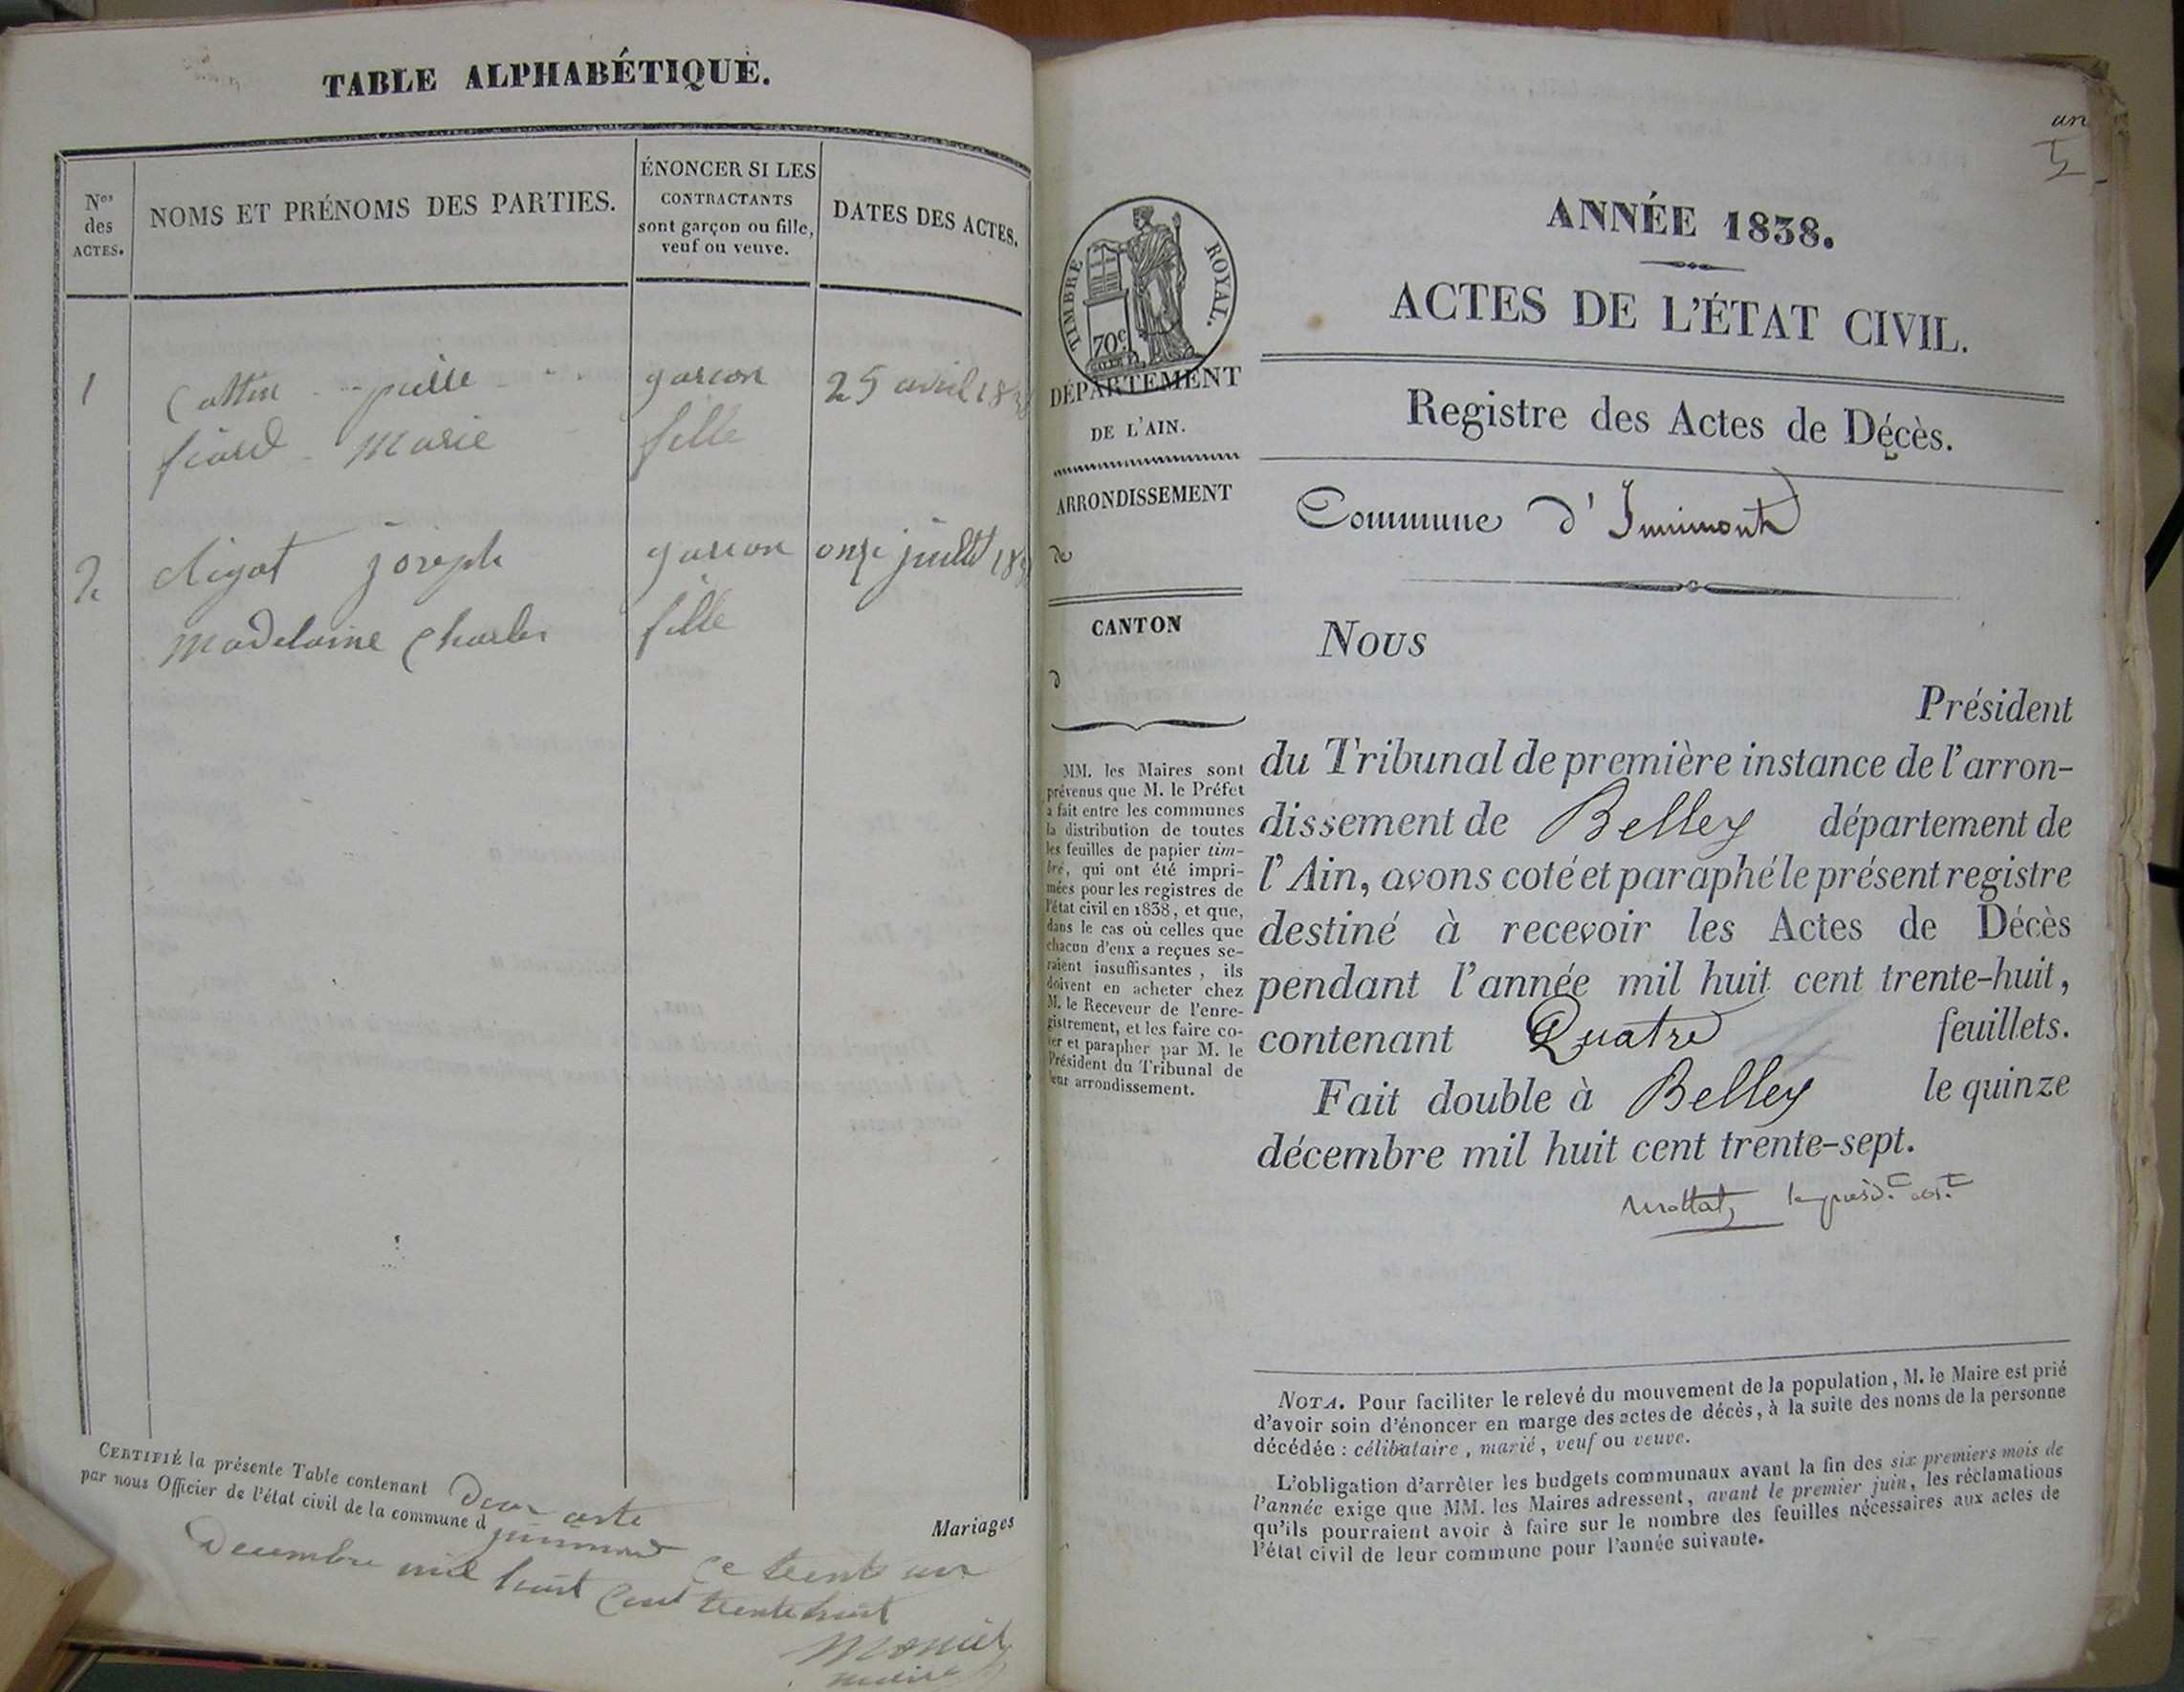 TABLE ALPHABÉTIQUE.
Nos des ACTES.
NOMS ET PRÉNOMS DES PARTIES.
ÉNONCER SI LES
CONTRACTANTS
sont garçon ou fille,
veuf ou veuve.
DATES DES ACTES.
1 Cottin pierre garcon 25 avril 183
fiard Marie fille
2 cligat joseph garcon onze juillet 18
Madelaine Charles fille
CERTIFIÉ la présente Table contenant Deux acte
par nous Officier de l'état civil de la commune d
Mariages
ce trente un
Decembre mil huit Cent trente huit
maire
an
5
TIMBRE ROYAL.
70c
DÉPARTEMENT
DE L'AIN.
ARRONDISSEMENT
de
CANTON
d
MM. les Maires sont
prévenus que M. le Préfet
a fait entre les communes
la distribution de toutes
les feuilles de papier tim-
bré, qui ont été impri-
mées pour les registres de
l'état civil en 1838, et que,
dans le cas où celles que
chacun d'eux a reçues se-
raient insuffisantes, ils
doivent en acheter chez
M. le Receveur de l'enre-
gistrement, et les faire co-
ter et parapher par M. le
Président du Tribunal de
leur arrondissement.
ANNÉE 1838.
ACTES DE L'ÉTAT CIVIL.
Registre des Actes de Décès.
Commune d'Innimont
Nous
Président
du Tribunal de première instance de l'arron-
dissement de Belley département de
l'Ain, avons coté et paraphé le présent registre
destiné à recevoir les Actes de Décès
pendant l'année mil huit cent trente-huit,
contenant Quatre feuillets.
Fait double à Belley le quinze
décembre mil huit cent trente-sept.
NOTA. Pour faciliter le relevé du mouvement de la population, M. le Maire est prié
d'avoir soin d'énoncer en marge des actes de décès, à la suite des noms de la personne
décédée : célibataire, marié, veuf ou veuve.
L'obligation d'arrêter les budgets communaux avant la fin des six premiers mois de
l'année exige que MM. les Maires adressent, avant le premier juin, les réclamations
qu'ils pourraient avoir à faire sur le nombre des feuilles nécessaires aux actes de
l'état civil de leur commune pour l'année suivante.